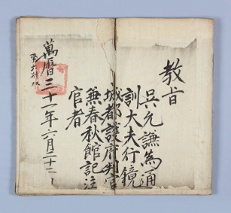 教旨
吳允謙為通
訓大夫行鏡
城都護府判官
兼春秋館記注
官者
萬曆三十一年六月二十二